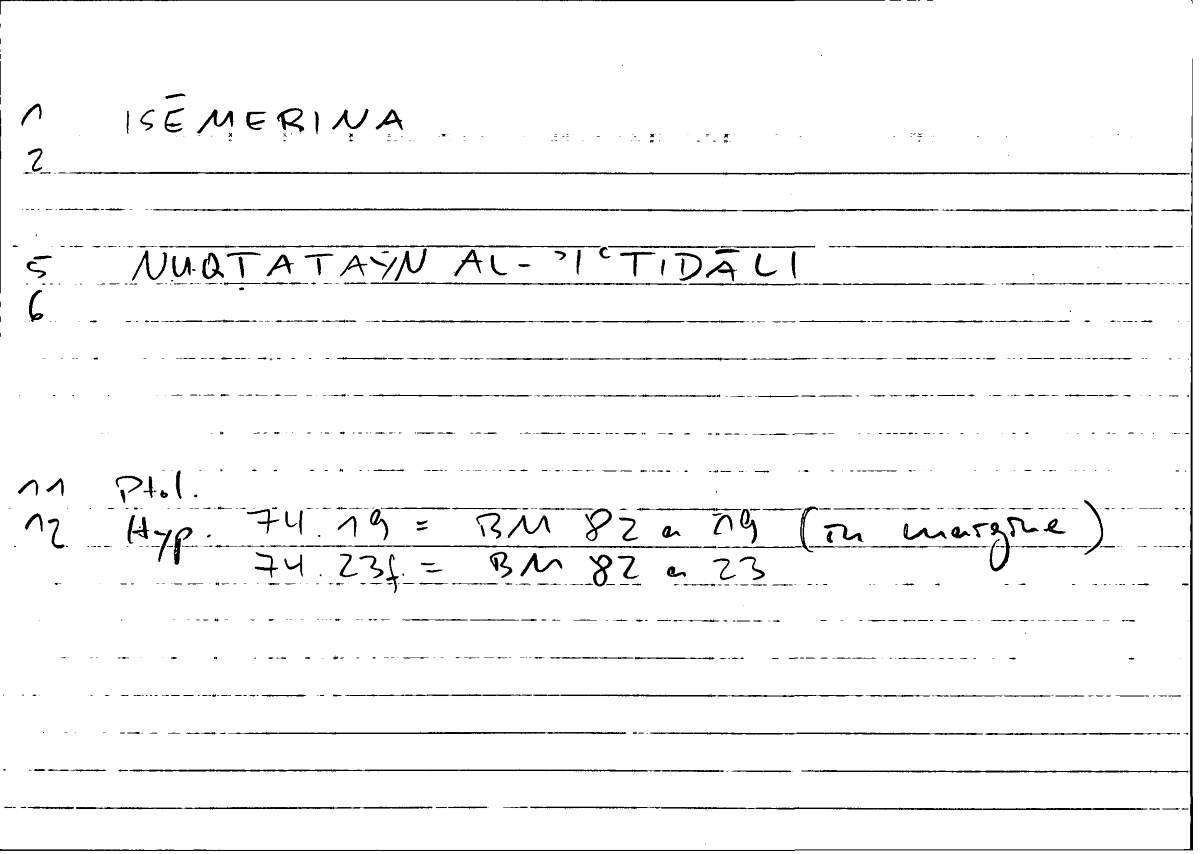 1 ISĒMERINA
2
5 NUQṬATAYN AL-ʾIʿTIDĀLI
6
11 Ptol.
12 Hyp. 74.19 = BM 82 a 19 (in margine)
74.23f. = BM 82 a 23